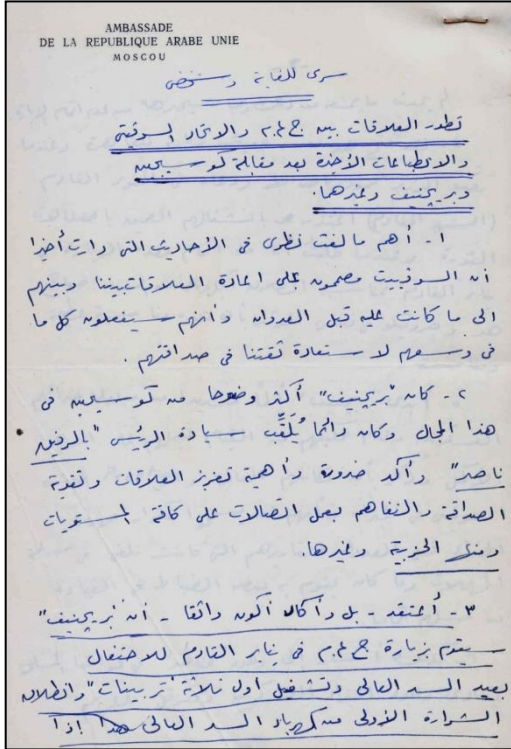 AMBASSADE
DE LA REPUBLIQUE ARABE UNIE
MOSCOU
سرى للغاية وشخصى
تطور العلاقات بين ج.ع.م والاتحاد السوفيتى
والانطباعات الأخيرة بعد مقابلة كوسيجين
وبريجنيف وغيرهما.
١- أهم ما لفت نظرى فى الأحاديث التى دارت أخيرا
أن السوفييت مصممون على اعادة العلاقات بيننا وبينهم
الى ما كانت عليه قبل العدوان وأنهم سيفعلون كل ما
فى وسعهم لاستعادة ثقتنا فى صداقتهم.
٢- كان "بريجنيف" أكثر وضوحا من كوسيجين فى
هذا المجال وكان دائما يُلَقِّب سيادة الرئيس "بالرفيق
ناصر" وأكد ضرورة وأهمية تعزيز العلاقات وتقوية
الصداقة والتفاهم بعمل اتصالات على كافة المستويات
ومنها الحزبية وغيرها.
٣- أعتقد - بل وأكاد أكون واثقا - أن "بريجنيف"
سيقوم بزيارة ج.ع.م فى يناير القادم للاحتفال
بعيد السد العالى وتشغيل أول ثلاثة "تربينات" وانطلاق
الشرارة الأولى من كهرباء السد العالى هذا إذا